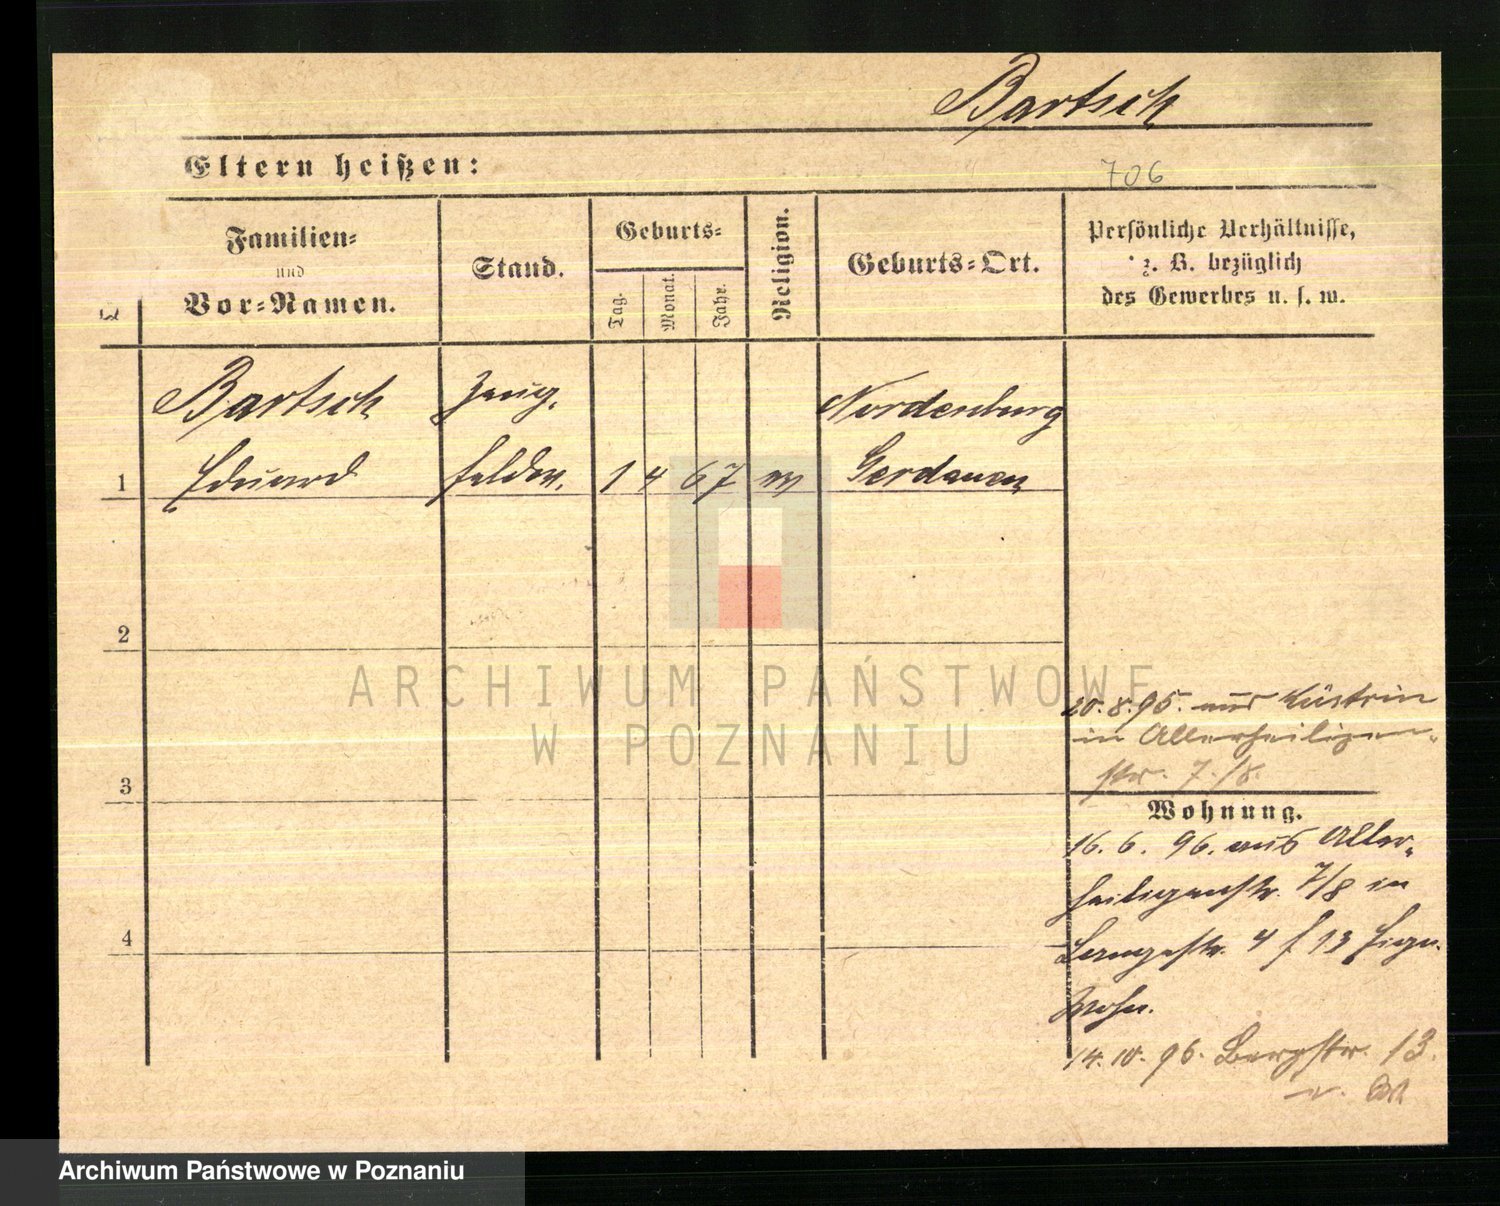 Bartsch
Eltern heißen:
706
Familien-
und
Vor-Namen.
Stand.
Geburts-
Tag.
Monat.
Jahr.
Religion.
Geburts-Ort.
Persönliche Verhältnisse,
z. B. bezüglich
des Gewerbes u. s. w.
Bartsch
Zeug-
Nordenburg
1
Eduard
feldw.
1
4
67
Gerdauen
2
ARCHIWUM PAŃSTWOWE
W POZNANIU
20.8.95. aus Küstrin
in Allerheiligen-
str. 7./8.
3
Wohnung.
16. 6. 96. aus Aller-
heiligenstr. 7/8 in
Langestr. 4 f 13
Wohn.
4
14.10.96. Bergstr. 13.
Archiwum Państwowe w Poznaniu